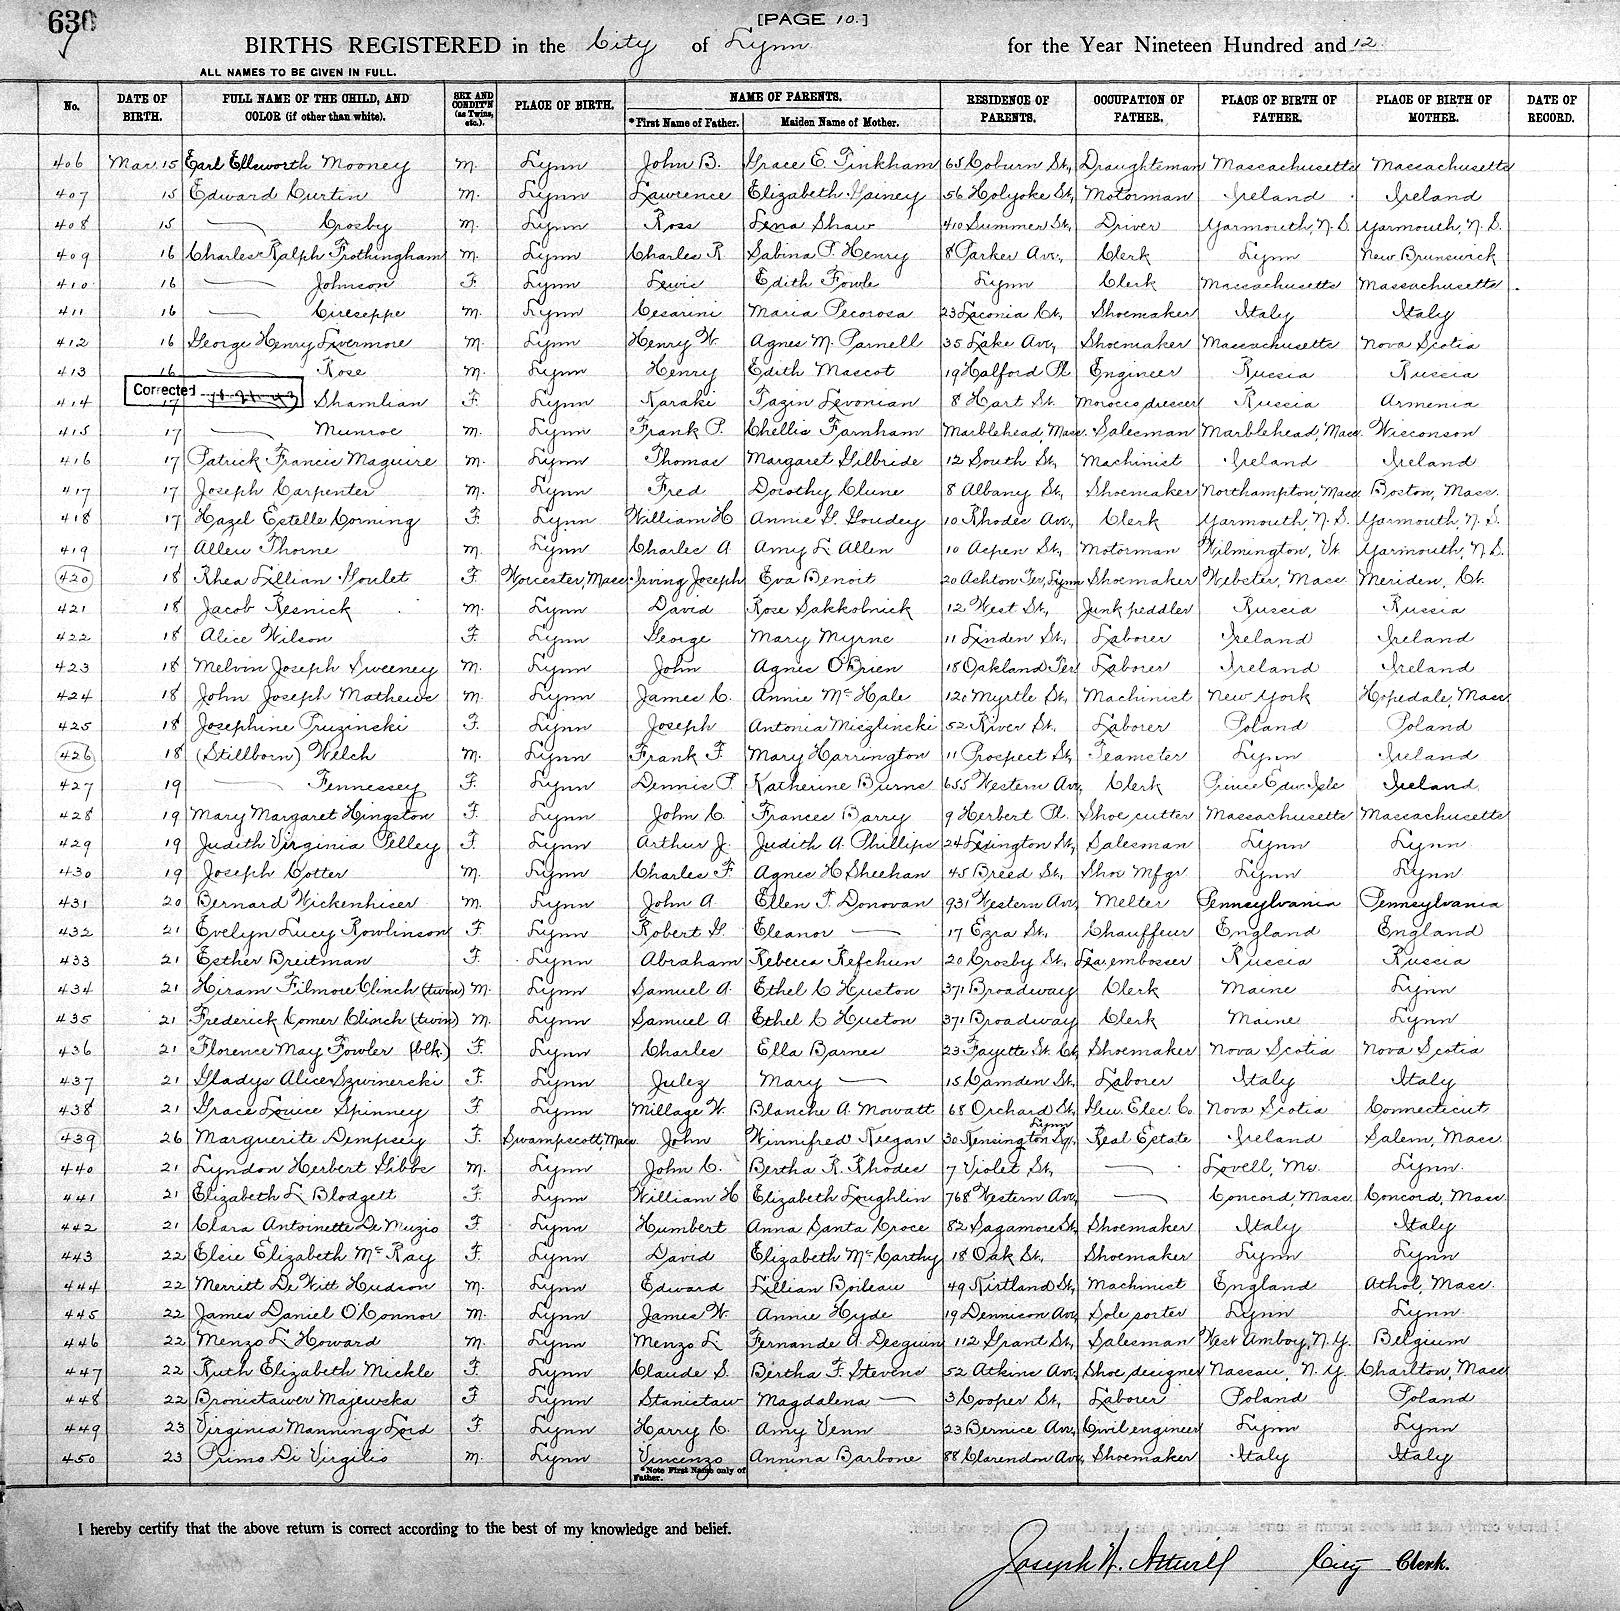 630
[PAGE 10.]
BIRTHS REGISTERED in the City of Lynn for the Year Nineteen Hundred and 12
ALL NAMES TO BE GIVEN IN FULL.
No. DATE OF BIRTH. FULL NAME OF THE CHILD, AND COLOR (if other than white). SEX AND CONDIT'N (as Twins, etc.). PLACE OF BIRTH. NAME OF PARENTS. *First Name of Father. Maiden Name of Mother. RESIDENCE OF PARENTS. OCCUPATION OF FATHER. PLACE OF BIRTH OF FATHER. PLACE OF BIRTH OF MOTHER. DATE OF RECORD.
406 Mar. 15 Earl Ellsworth Mooney M. Lynn John B. Grace E. Pinkham 65 Coburn St., Draughtsman Massachusetts Massachusetts
407 15 Edward Curtin M. Lynn Lawrence Elizabeth Hainey 56 Holyoke St., Motorman Ireland Ireland
408 15 — Crosby M. Lynn Ross Lena Shaw 410 Summer St., Driver Yarmouth, N.S. Yarmouth, N.S.
409 16 Charles Ralph Frothingham M. Lynn Charles R. Sabina P. Henry 8 Parker Ave., Clerk Lynn New Brunswick
410 16 — Johnson F. Lynn Lewis Edith Fowle Lynn Clerk Massachusetts Massachusetts
411 16 — Ciuseppe M. Lynn Cesarini Maria Pecorosa 23 Laconia Ct., Shoemaker Italy Italy
412 16 George Henry Livermore M. Lynn Henry W. Agnes M. Parnell 35 Lake Ave., Shoemaker Massachusetts Nova Scotia
413 16 — Rose M. Lynn Henry Edith Mascot 19 Halford Pl. Engineer Russia Russia
Corrected
414 17 Shamlian F. Lynn Karaki Tazin Levonian 8 Hart St. Morocco dresser Russia Armenia
415 17 — Munroe M. Lynn Frank P. Chellis Farnham Marblehead, Mass. Salesman Marblehead, Mass. Wisconson
416 17 Patrick Francis Maguire M. Lynn Thomas Margaret Gilbride 12 South St., Machinist Ireland Ireland
417 17 Joseph Carpenter M. Lynn Fred Dorothy Clune 8 Albany St., Shoemaker Northampton, Mass. Boston, Mass.
418 17 Hazel Estelle Corning F. Lynn William H. Annie G. Goudey 10 Rhodes Ave., Clerk Yarmouth, N.S. Yarmouth, N.S.
419 17 Allen Thorne M. Lynn Charles A. Amy L. Allen 10 Aspen St., Motorman Wilmington, Vt. Yarmouth, N.S.
420 18 Rhea Lillian Goulet F. Worcester, Mass. Irving Joseph Eva Benoit 20 Ashton Ter., Lynn Shoemaker Webster, Mass Meriden, Ct.
421 18 Jacob Resnick M. Lynn David Rose Sakkolnick 12 West St., Junk peddler Russia Russia
422 18 Alice Wilson F. Lynn George Mary Myrne 11 Linden St., Laborer Ireland Ireland
423 18 Melvin Joseph Sweeney M. Lynn John Agnes O'Brien 18 Oakland Ter. Laborer Ireland Ireland
424 18 John Joseph Mathews M. Lynn James C. Annie McHale 120 Myrtle St., Machinist New York Hopedale, Mass
425 18 Josephine Pruzinski F. Lynn Joseph Antonia Miezlincki 52 River St., Laborer Poland Poland
426 18 (Stillborn) Welch M. Lynn Frank F. Mary Harrington 11 Prospect St., Teamster Lynn Ireland
427 19 — Fennessey F. Lynn Dennis P. Katherine Burns 655 Western Ave, Clerk Prince Edw. Isle Ireland
428 19 Mary Margaret Hingston F. Lynn John C. Frances Barry 9 Herbert Pl. Shoe cutter Massachusetts Massachusetts
429 19 Judith Virginia Pelley F. Lynn Arthur J. Judith A. Phillips 24 Lexington St., Salesman Lynn Lynn
430 19 Joseph Cotter M. Lynn Charles F. Agnes H Sheehan 45 Breed St., Shoe Mfgr Lynn Lynn
431 20 Bernard Wickenhiser M. Lynn John A. Ellen T. Donovan 931 Western Ave, Melter Pennsylvania Pennsylvania
432 21 Evelyn Lucy Rowlinson F. Lynn Robert G. Eleanor — 17 Ezra St., Chauffeur England England
433 21 Esther Breitman F. Lynn Abraham Rebecca Refchun 20 Crosby St., Lea. embosser Russia Russia
434 21 Hiram Filmore Clinch (twin) M. Lynn Samuel A. Ethel C Huston 371 Broadway Clerk Maine Lynn
435 21 Frederick Comer Clinch (twin) M. Lynn Samuel A. Ethel C Huston 371 Broadway Clerk Maine Lynn
436 21 Florence May Fowler (blk.) F. Lynn Charles Ella Barnes 23 Fayette St. Ct., Shoemaker Nova Scotia Nova Scotia
437 21 Gladys Alice Szwinerski F. Lynn Julez Mary — 15 Camden St., Laborer Italy Italy
438 21 Grace Louise Spinney F. Lynn Millage W. Blanche A. Mowatt 68 Orchard St., Gen. Elec. Co. Nova Scotia Connecticut
439 26 Marguerite Dempsey F. Swampscott, Mass John Winnifred Keegan 30 Kensington Sq., Lynn Real Estate Ireland Salem, Mass
440 21 Lyndon Herbert Gibbs M. Lynn John C. Bertha R. Rhodes 7 Violet St., — Lovell, Me. Lynn
441 21 Elizabeth L Blodgett F. Lynn William H Elizabeth Loughlin 768 Western Ave, — Concord, Mass. Concord, Mass
442 21 Clara Antoinette De Muzio F Lynn Humbert Anna Santa Croce 82 Sagamore St., Shoemaker Italy Italy
443 22 Elsie Elizabeth McKay F. Lynn David Elizabeth McCarthy 18 Oak St., Shoemaker Lynn Lynn
444 22 Merritt De Witt Hudson M. Lynn Edward Lillian Boileau 49 Kirtland St., Machinist England Athol, Mass.
445 22 James Daniel O'Connor M. Lynn James W. Annie Hyde 19 Dennison Ave, Sole sorter Lynn Lynn
446 22 Menzo L Howard M. Lynn Menzo L Fernande A. Desguin 112 Grant St., Salesman West Amboy, N.Y. Belgium
447 22 Ruth Elizabeth Mickle F. Lynn Claude S. Bertha F. Stevens 52 Atkins Ave, Shoe designer Nassau, N.Y. Charlton, Mass
448 22 Bronistawer Majewska F Lynn Stanistaw Magdalena — 3 Cooper St., Laborer Poland Poland
449 23 Virginia Manning Lord F. Lynn Harry C. Amy Venn 23 Bernice Ave, Civil engineer Lynn Lynn
450 23 Primo Di Virgilio M. Lynn Vincenzo Annina Barbone 88 Clarendon Ave, Shoemaker Italy Italy
*Note First Name only of Father.
I hereby certify that the above return is correct according to the best of my knowledge and belief.
Joseph W. Attwill City Clerk.